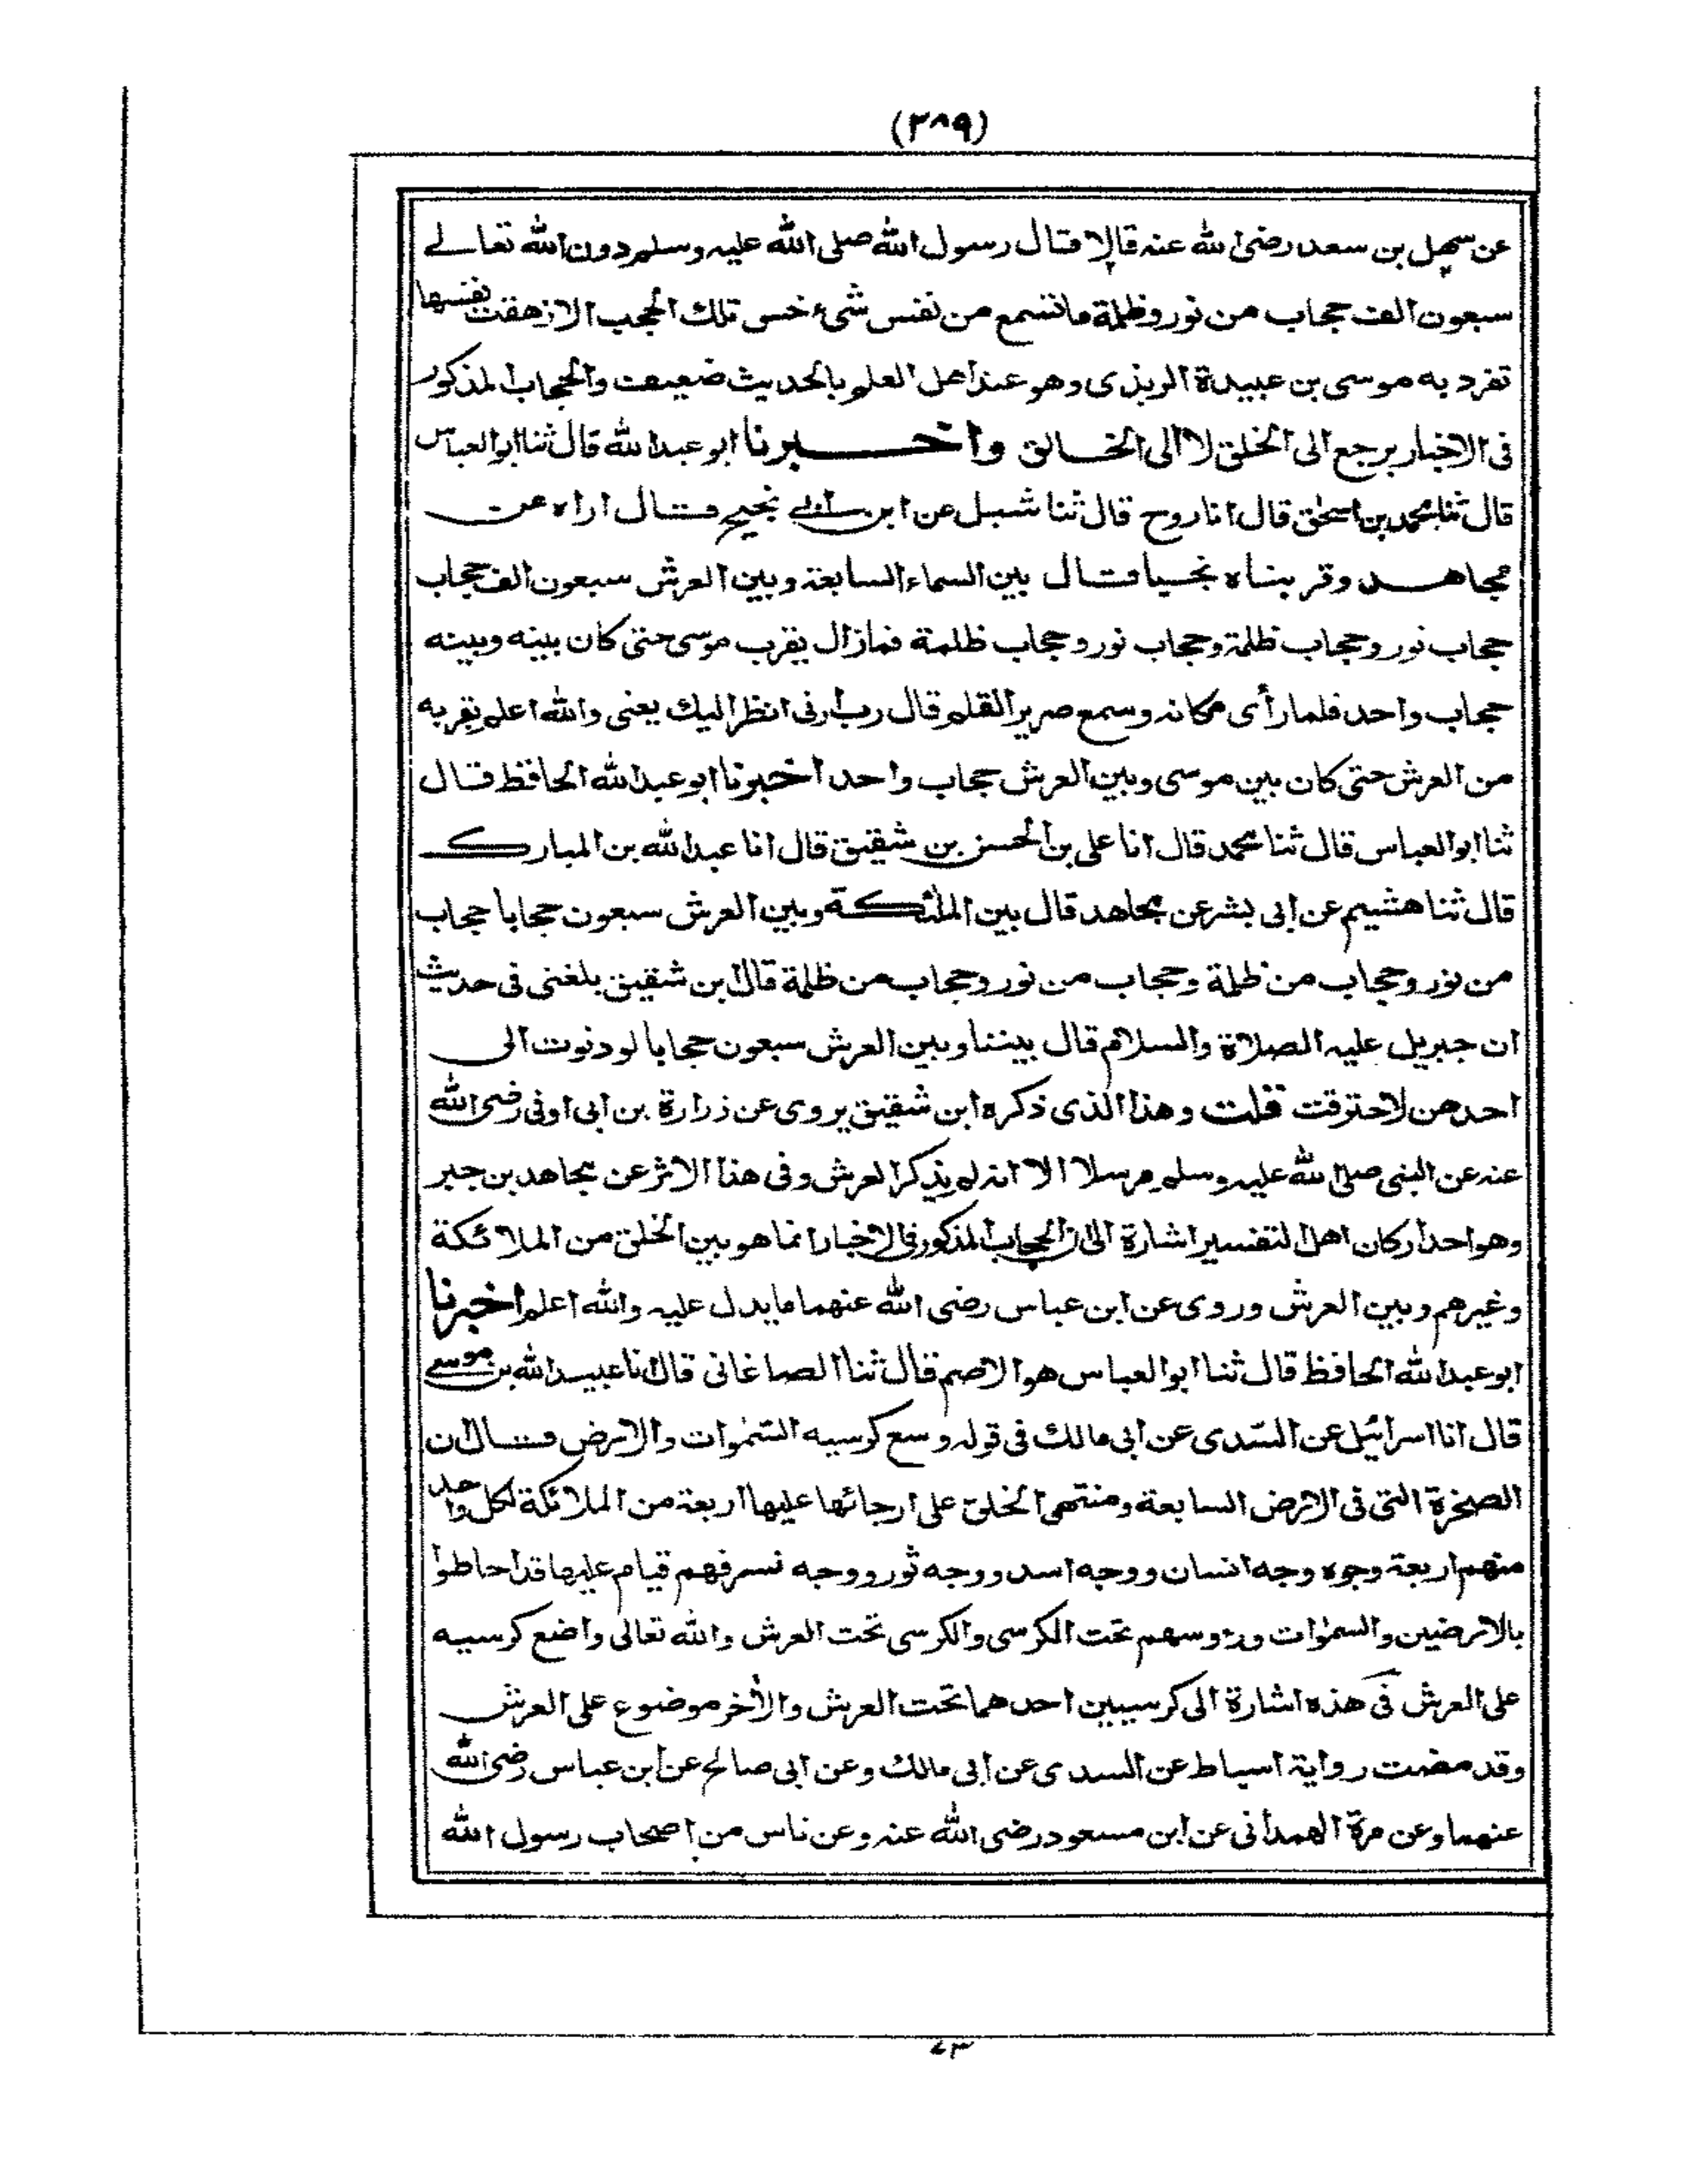 (٢٨٩)
عن سهل بن سعد رضى الله عنه قالا قال رسول الله صلى الله عليه وسلم دون الله تعالے
سبعون الف حجاب من نور وظلمة ما تسمع من نفس شئ حس تلك الحجب الا زهقت نفسها
تفرد به موسى بن عبيدة الربذى وهو عند اهل العلم بالحديث ضعيف والحجاب المذكور
فى الاخبار يرجع الى الخلق لا الى الخالق واخبرنا ابو عبد الله قال ثنا ابو العباس
قال ثنا محمد بن اسحٰق قال انا روح قال ثنا شبل عن ابن ابے نجيح قال اراه عن
مجاهد وقربناه نجيا قال بين السماء السابعة وبين العرش سبعون الف حجاب
حجاب نور وحجاب ظلمة وحجاب نور وحجاب ظلمة فما زال يقرب موسى حتى كان بينه وبينه
حجاب واحد فلما رأى مكانه وسمع صرير القلم قال رب ارنى انظر اليك يعنى والله اعلم يقربه
من العرش حتى كان بين موسى وبين العرش حجاب واحد اخبرنا ابو عبد الله الحافظ قال
ثنا ابو العباس قال ثنا محمد قال انا على بن الحسن بن شقيق قال انا عبد الله بن المبارك
قال ثنا هشيم عن ابى بشر عن مجاهد قال بين الملئكة وبين العرش سبعون حجابا حجاب
من نور وحجاب من ظلمة وحجاب من نور وحجاب من ظلمة قال ابن شقيق بلغنى فى حديث
ان جبريل عليه الصلاة والسلام قال بيننا وبين العرش سبعون حجابا لو دنوت الى
احدهن لاحترقت قلت وهذا الذى ذكره ابن شقيق يروى عن زرارة بن ابى اوفى رضى الله
عنه عن النبى صلى الله عليه وسلم مرسلا الا انه لم يذكر العرش وفى هذا الاثر عن مجاهد بن جبر
وهو احد اركان اهل التفسير اشارة الى ان الحجاب المذكور فى الاخبار انما هو بين الخلق من الملائكة
وغيرهم وبين العرش وروى عن ابن عباس رضى الله عنهما ما يدل عليه والله اعلم اخبرنا
ابو عبد الله الحافظ قال ثنا ابو العباس هو الاصم قال ثنا الصاغانى قال انا عبيد الله بن موسے
قال انا اسرائيل عن السّدى عن ابى مالك فى قوله وسع كرسيه السّمٰوات والارض قال ان
الصخرة التى فى الارض السابعة ومنتهى الخلق على ارجائها عليها اربعة من الملائكة لكل واحد
منهم اربعة وجوه وجه انسان ووجه اسد ووجه ثور ووجه نسر فهم قيام عليها قد احاطوا
بالارضين والسمٰوات ورءوسهم تحت الكرسى والكرسى تحت العرش والله تعالى واضع كرسيه
على العرش فى هذه اشارة الى كرسيين احدهما تحت العرش والأخر موضوع على العرش
وقد مضت رواية اسباط عن السدى عن ابى مالك وعن ابى صالح عن ابن عباس رضى الله
عنهما وعن مرة الهمدانى عن ابن مسعود رضى الله عنه وعن ناس من اصحاب رسول الله